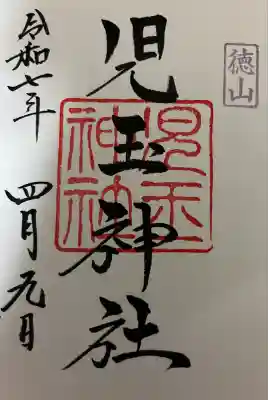 徳山
児玉神社
児玉神社
令和七年
四月元日